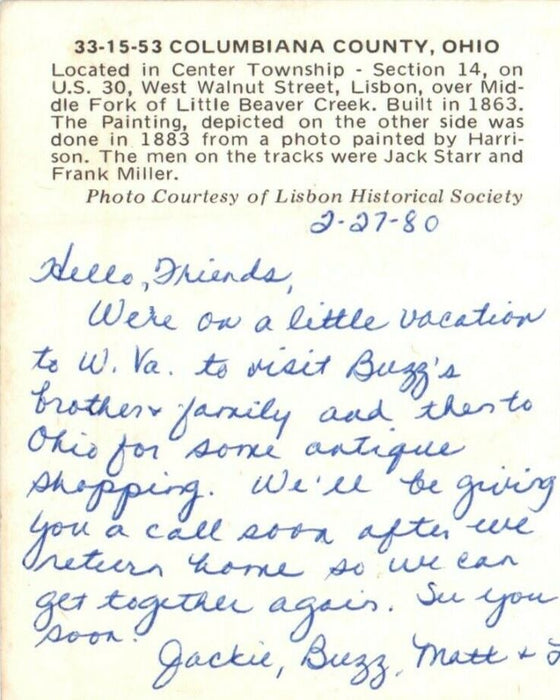 33-15-53 COLUMBIANA COUNTY, OHIO
Located in Center Township - Section 14, on
U.S. 30, West Walnut Street, Lisbon, over Mid-
dle Fork of Little Beaver Creek. Built in 1863.
The Painting, depicted on the other side was
done in 1883 from a photo painted by Harri-
son. The men on the tracks were Jack Starr and
Frank Miller.
Photo Courtesy of Lisbon Historical Society
2-27-80
Hello, Friends,
We're on a little vacation
to W. Va. to visit Buzz's
brother + family and then to
Ohio for some antique
shopping. We'll be giving
you a call soon after we
return home so we can
get together again. See you
soon.
Jackie, Buzz, Matt +